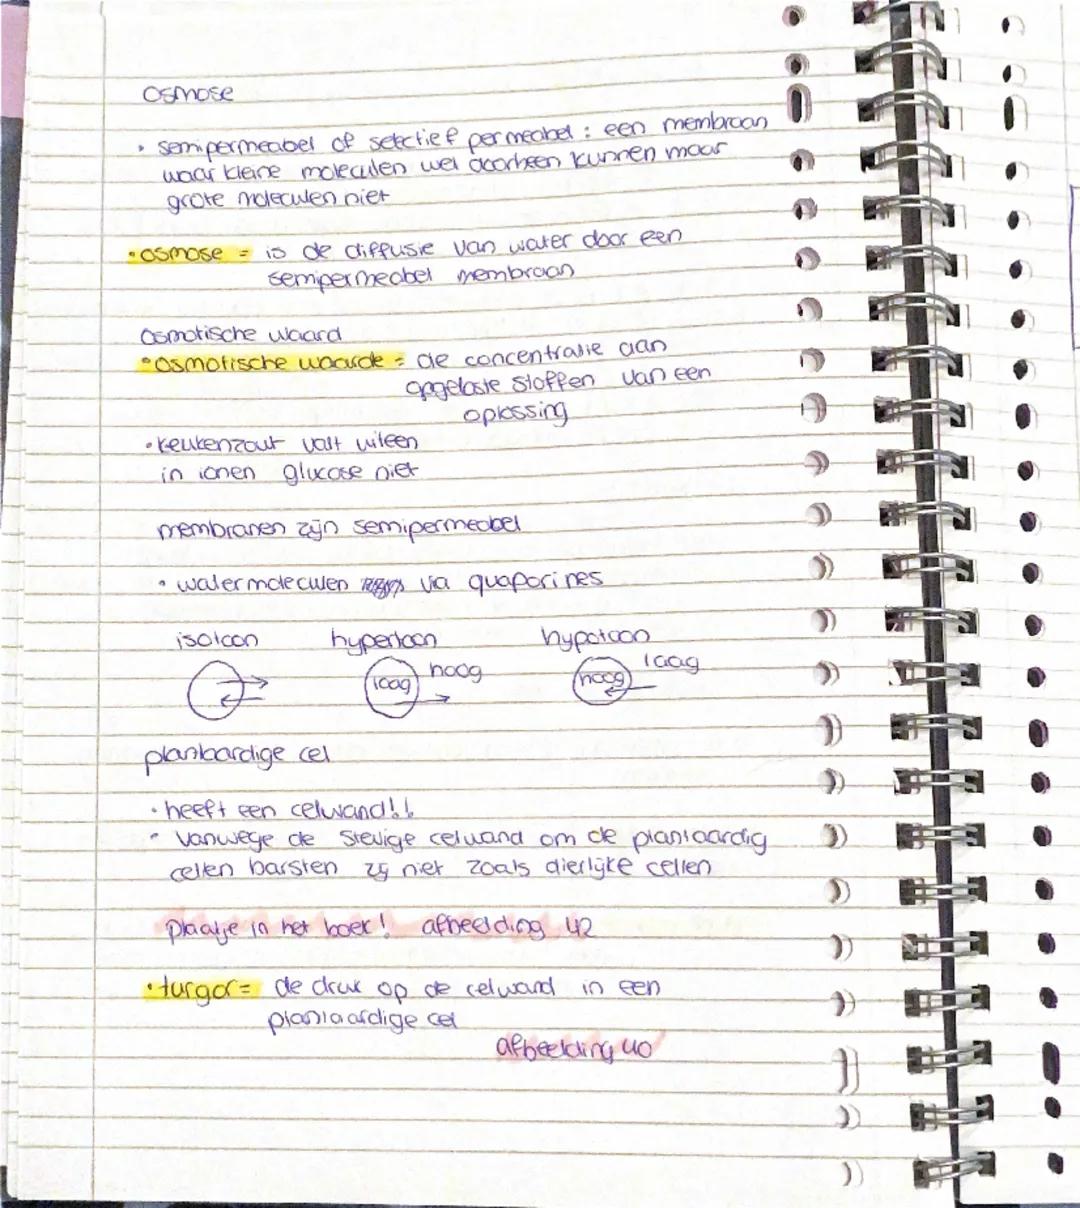 osmose
• semipermeabel of selectief permeabel : een membraan
waar kleine moleculen wel doorheen kunnen maar
grote moleculen niet
• osmose = is de diffusie van water door een
semipermeabel membraan
Osmotische waard
• osmotische waarde = de concentratie aan
opgeloste stoffen van een
oplossing
• keukenzout valt uiteen
in ionen glucose niet
membranen zijn semipermeabel
• watermoleculen via quaporines
isotoon hypertoon hypotoon
laag hoog hoog laag
plantaardige cel
• heeft een celwand!!
• Vanwege de stevige celwand om de plantaardig
cellen barsten zij niet zoals dierlijke cellen
plaatje in het boek! afbeelding 42
• turgor = de druk op de celwand in een
plantaardige cel
afbeelding 40